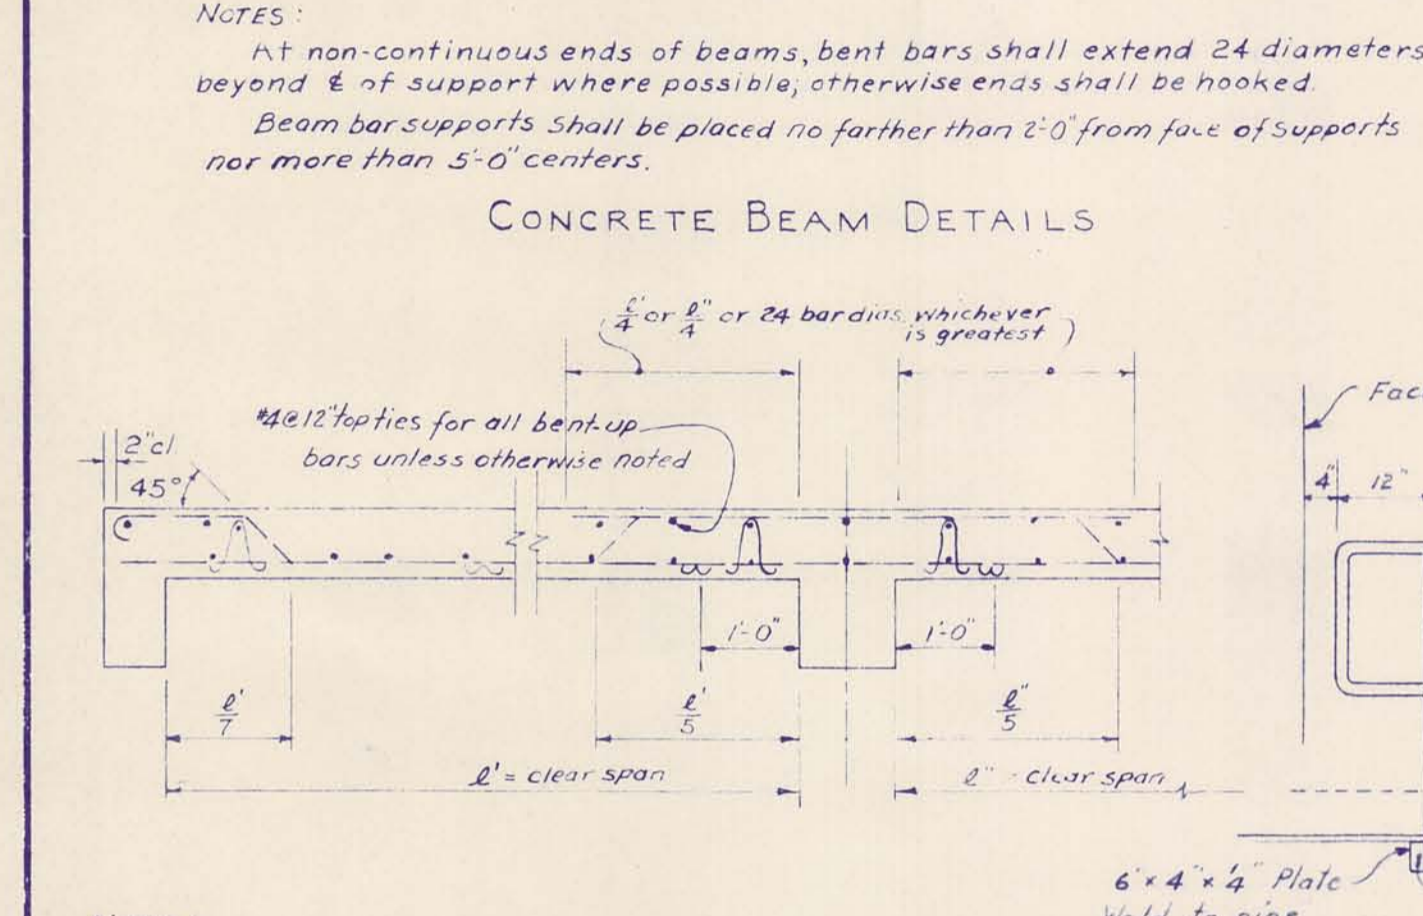 NOTES:
At non-continuous ends of beams, bent bars shall extend 24 diameters
beyond ℄ of support where possible; otherwise ends shall be hooked.
Beam bar supports shall be placed no farther than 2'-0" from face of supports
nor more than 5'-0" centers.
CONCRETE BEAM DETAILS
ℓ'/4 or ℓ"/4 or 24 bar dias. whichever
is greatest
#4@12" top ties for all bent-up
bars unless otherwise noted
2"cl
45°
4" 12"
1'-0" 1'-0"
ℓ'/7 ℓ'/5 ℓ"/5
ℓ' = clear span ℓ" clear span
6" x 4" x 1/4" Plate